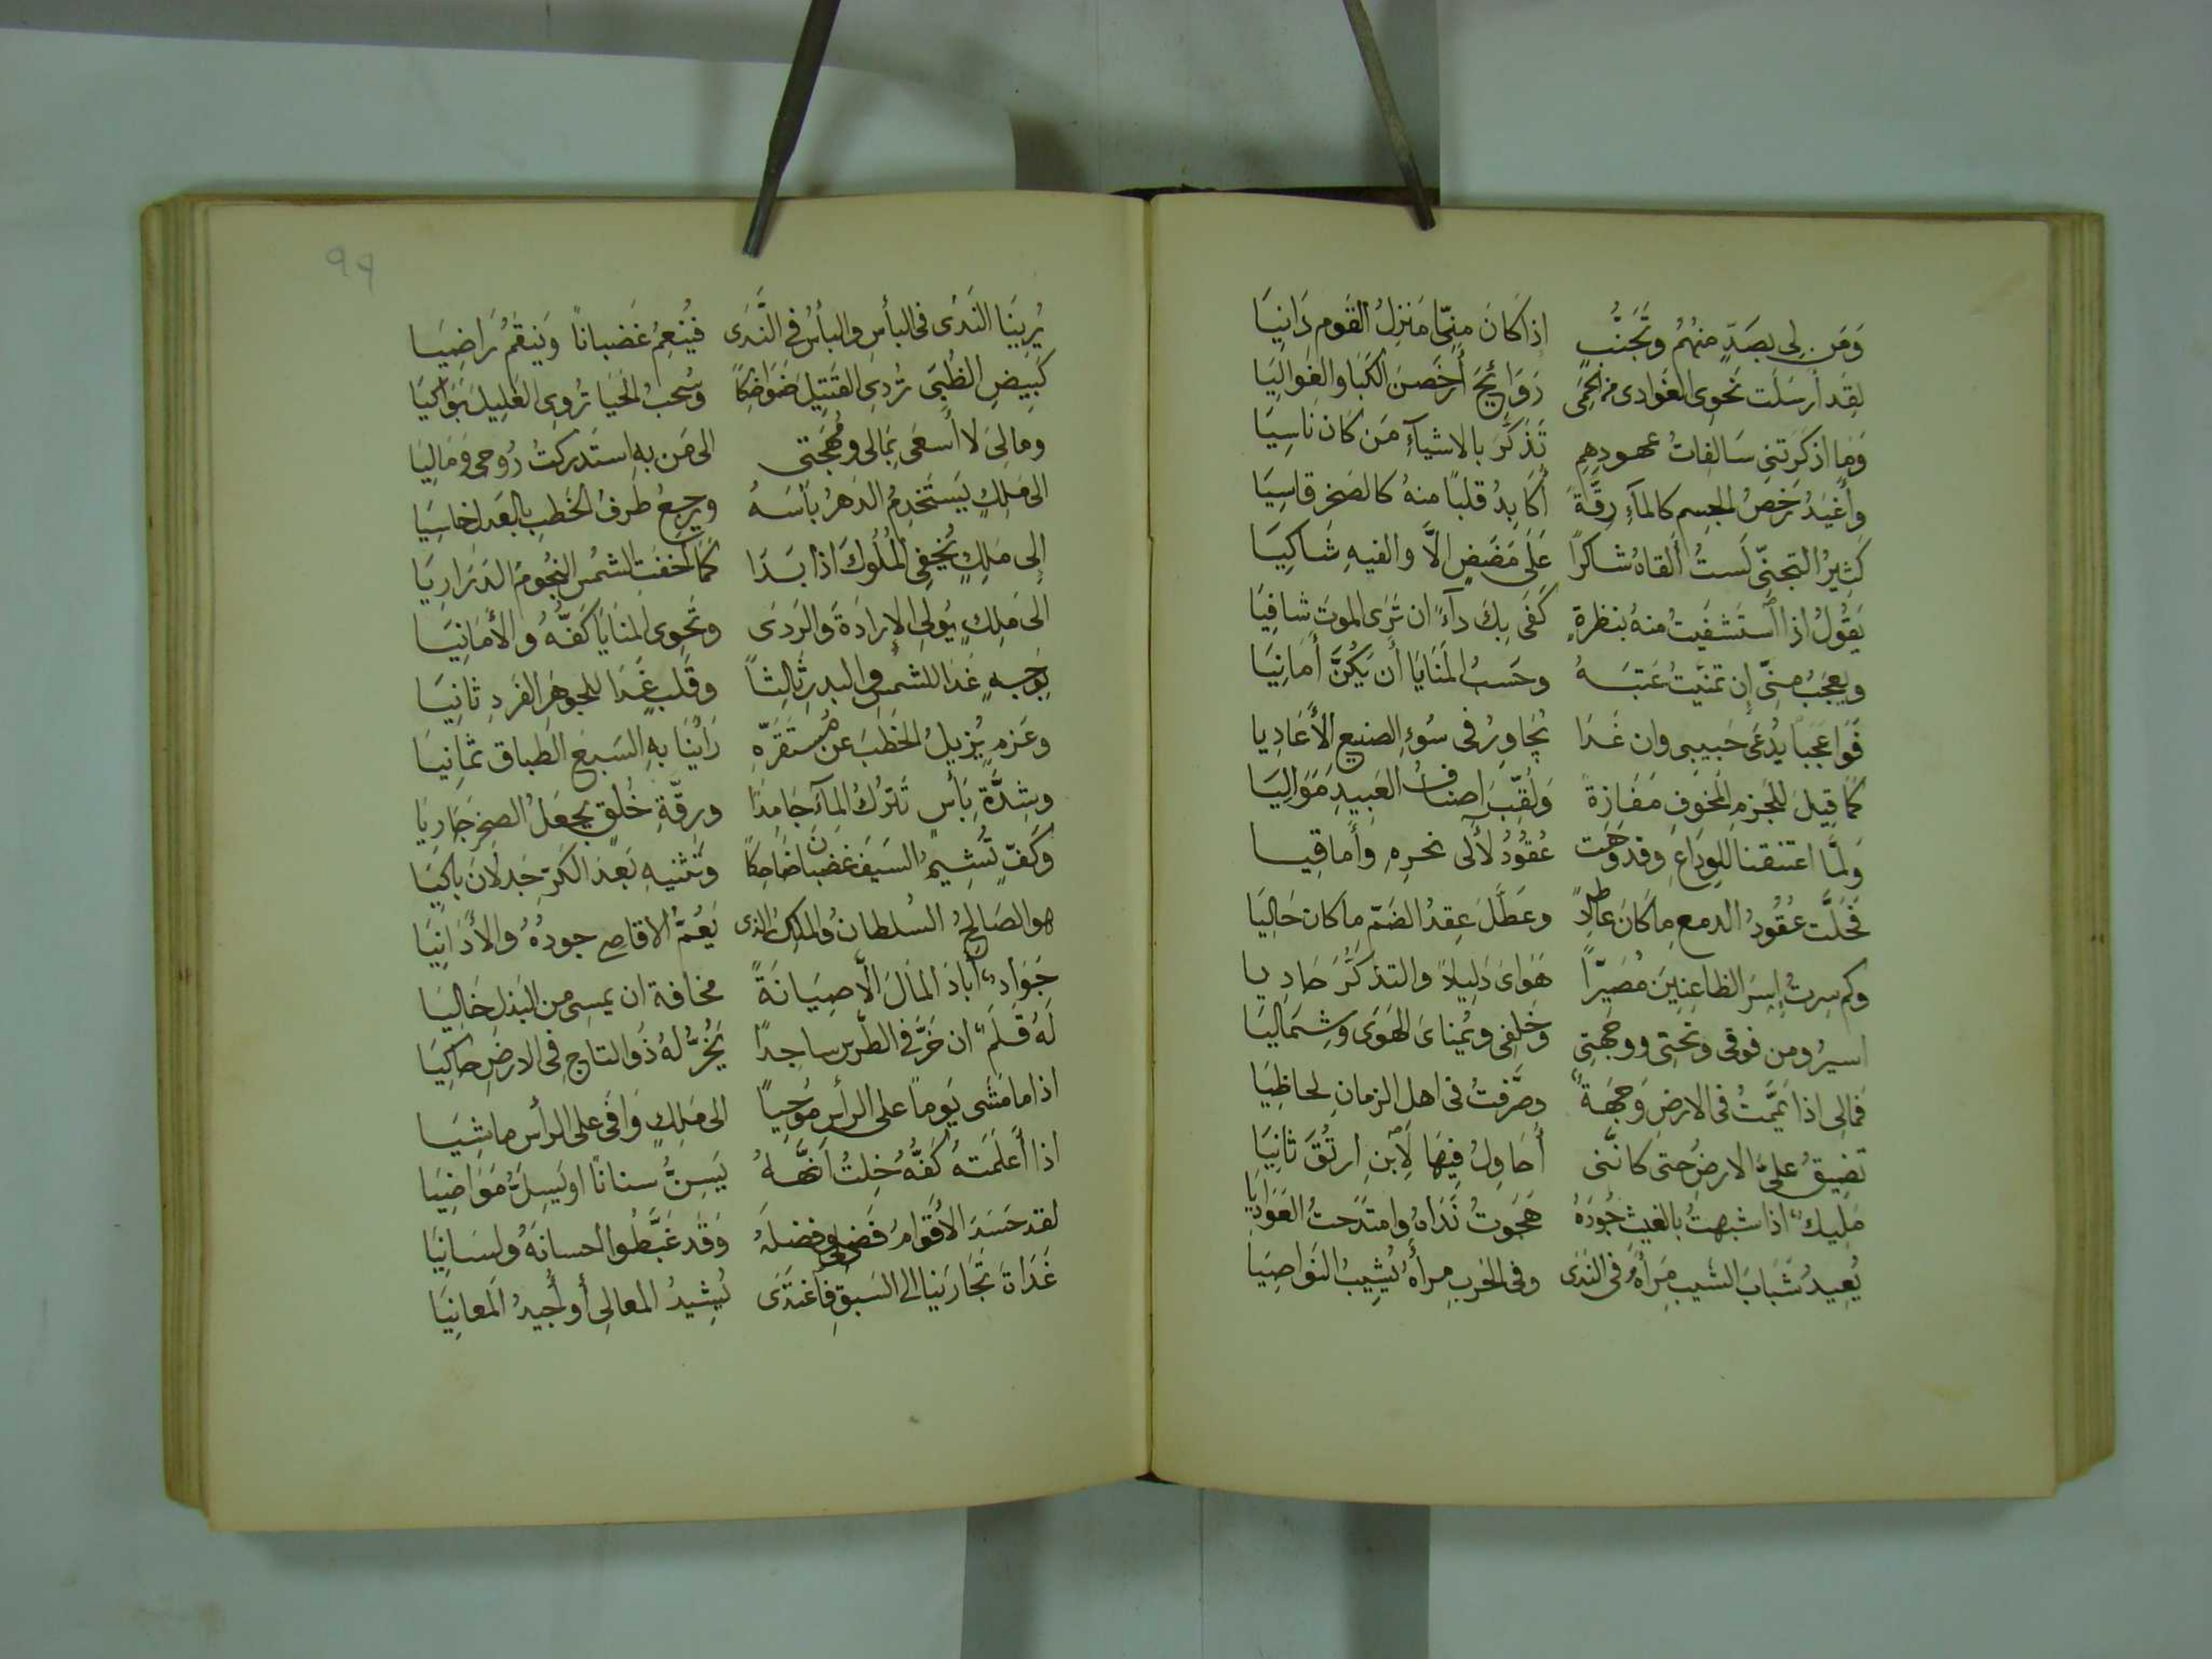 وَمَن لِى بِصَدٍّ مِنهُمُ وَتَجَنُّبٍ إِذا كَانَ مِنِّى مَنزِلُ القَومِ دَانِيَا
لقَد أَرسَلَت نَحوِى الغَوَادِى مِن الحِمَى رَوَائِحَ أَرخَصنَ الكَبَا وَالغَوالِيَا
وَمَا اذكَرَتنِى سَالِفَاتُ عهودِهِم تَذَكَّرَ بالاشيآءِ مَن كَانَ نَاسِيَا
وأَغيَدُ رَخصُ الجِسمِ كالمآءِ رِقَّةً أُكَابِدُ قلبًا منهُ كالصَخرِ قاسِيَا
كَثِيرُ التجَنِّى لَستُ أَلقاهُ شاكرًا عَلَى مَضَضٍ الاَّ والفيهِ شَاكِيَا
يَقُولُ اذا استَشفَيتُ منهُ بنظرةٍ كَفَى بِكَ دآءً ان تَرَى الموتَ شافِيَا
ويعجَبُ مِنِّى إن تمنيتُ عَتبَهُ وحَسبُ المنَايَا أَن يَكُنَّ أَمانِيَا
فَوَاعَجَبًا يُدعَى حَبيبى وان غَدَا يُجَاوِرُ فى سُوءِ الصنيعِ الأَعَادِيا
كَمَا قِيلَ للجَزمِ المَخوفِ مَفَازةً وَلُقِّبَ اصنافُ العَبِيدِ مَوَالِيَا
وَلَمَّا اعتنقنا للوِدَاعِ وقد وَهَت عُقُودُ لآَلى نحرِهِ وأَماقِيَا
فَحَلَّت عُقُودُ الدمعِ مَا كَانَ عاطِلاً وعَطَّلَ عِقدُ الضَمِّ ما كان حَالِيَا
وكم سِرتُ إِسرَ الظاعِنِينَ مُصَيِّرًا هَوَاىَ دَلِيلاً والتذكُّرَ حَادِيا
اسيرُ ومن فوقى وتحتِى ووجهَتِى وخَلفِى ويُمناىَ الهَوَى وشِمَالِيَا
فمالِى اذا يَمَّمتُ فى الارضِ وَجهَةً وصَرَّفتُ فى اهلِ الزمانِ لحاظِيَا
تضِيقُ علىَّ الارضُ حتى كانَّنى أُحَاوِلُ فِيهَا لِابنِ ارتُقَ ثانِيَا
مَلِيكٌ اذا شبهتُ بالغيثِ جُودَهُ هَجَوتُ نَدَاهُ وامتَدَحتُ الغَوَادِيَا
يُعِيدُ شَبَابَ الشَيبِ مَرأَهُ فى النَدَى وفى الحَربِ مرأهُ يُشِيبُ النَواصِيَا
٩٩
يُرِينَا النَدَى فى البأسِ والبأسُ فى النَّدَى فَيُنعِمُ غَضباناً وَيَنقَمُ رَاضِيَا
كَبِيضِ الظُبَى تُردِى القَتِيلَ ضَوَاحِكًا وسُحبُ الحَيَا تُروِى الغَلِيلَ بَوَاكِيَا
ومالِىَ لا أَسعَى بِمَالى ومُهجَتى الى مَن بِهِ استَدرَكتُ رُوحِى وَمَالِيَا
الى مَلِكٍ يَستَخدِمُ الدَهرُ بَأسَهُ ويرجِعُ طَرفُ الخَطبِ بالعَدلِ خاسِيَا
إلى مَلِكٍ يُخفِى المُلُوكَ اذا بَدَا كَمَا أخفَتِ الشَمسُ النجُومَ الدَرَارِيَا
الى مَلِكٍ يُولِى الإِرادَةَ وَالرَدَى وتَحوِى المَنَايَا كَفُّهُ والأَمَانِيَا
بِوَجهٍ غَدَا للشَمسِ والبدرِ ثالِثًا وقَلبٍ غَدَا للجوهَرِ الفَردِ ثانِيَا
وعَزمٍ يُزِيلُ الخَطبَ عن مُستَقَرِّهِ رَأَينَا بهِ السَبعَ الطباقَ ثمانِيَا
وشِدَّةِ بَأسٍ تَترُكُ المآءَ جَامِدًا ورِقَّةِ خُلقٍ يجعَلُ الصخرَ جَارِيَا
وَكَفٍّ تُشِيمُ السَيفَ غضبانَ ضَاحِكًا وتَثنيهِ بَعدَ الكَرِّ جَدلانَ باكِيَا
هو الصَالِحُ السُلطانُ والملكُ الذى يَعُمُّ الاقاصِى جودُهُ والأَدَانِيَا
جَوَادٌ أَبَادَ المَالَ الاَّ صِيَانَةً مخافةَ ان يمسِى من البذلِ خَالِيَا
لَهُ قَلَمٌ ان خَرَّ فى الطِّرسِ ساجدًا يَخُرُّ لهُ ذُو التاجِ فى الارضِ حاكِيَا
اذا ما مَشَى يَومًا على الرأسِ مُوحِياً الى مَلِكٍ وَافَى على الرأسِ ماشِيَا
اذا أَعلَمَتهُ كَفُّهُ خِلتُ أَنَّهَا يَسِنُّ سنانًا او يَسِلُّ مَوَاضِيَا
لقد حَسَدَ الأَقوامُ فَضلِى وفضلَهُ وَقَد غَبَّطُوا احسانَهُ ولِسَانِيَا
غَدَاةَ تجَارَينا الى السَبقِ فاغتَدَى يُشِيدُ المعالِى أو أُجِيدُ المَعانِيَا